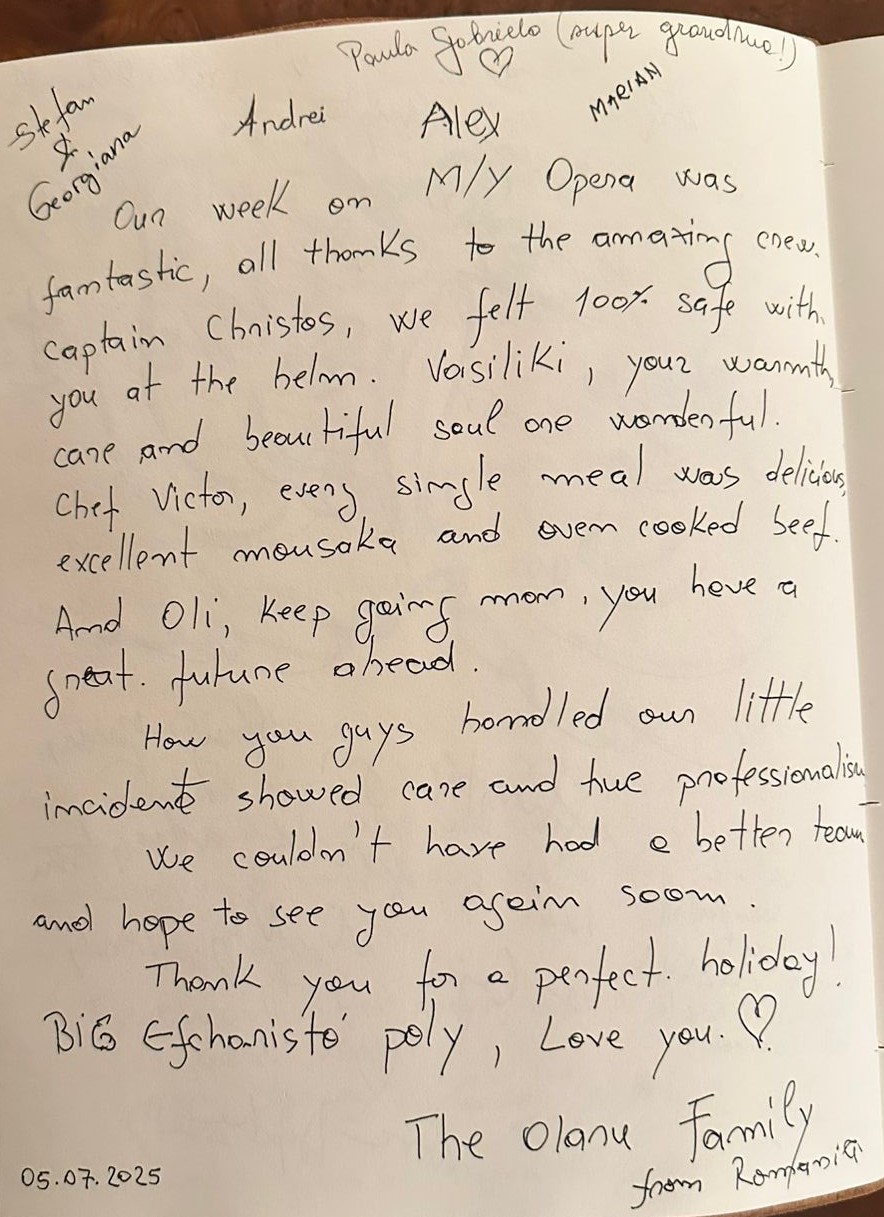 Paula Gabriela (super grandma!)
♡
Stefan
&
Georgiana
Andrei
Alex
MARIAN
Our week on M/Y Opera was
fantastic, all thanks to the amazing crew.
Captain Christos, we felt 100% safe with
you at the helm. Vasiliki, your warmth,
care and beautiful soul are wonderful.
Chef Victor, every single meal was delicious,
excellent mousaka and oven cooked beef.
And Oli, keep going man, you have a
great. future ahead.
How you guys handled our little
incident showed care and true professionalism
We couldn't have had a better team
and hope to see you again soon.
Thank you for a perfect. holiday!
BIG Efcharistó poly, Love you. ♡
The Olaru Family
from Romania
05.07.2025